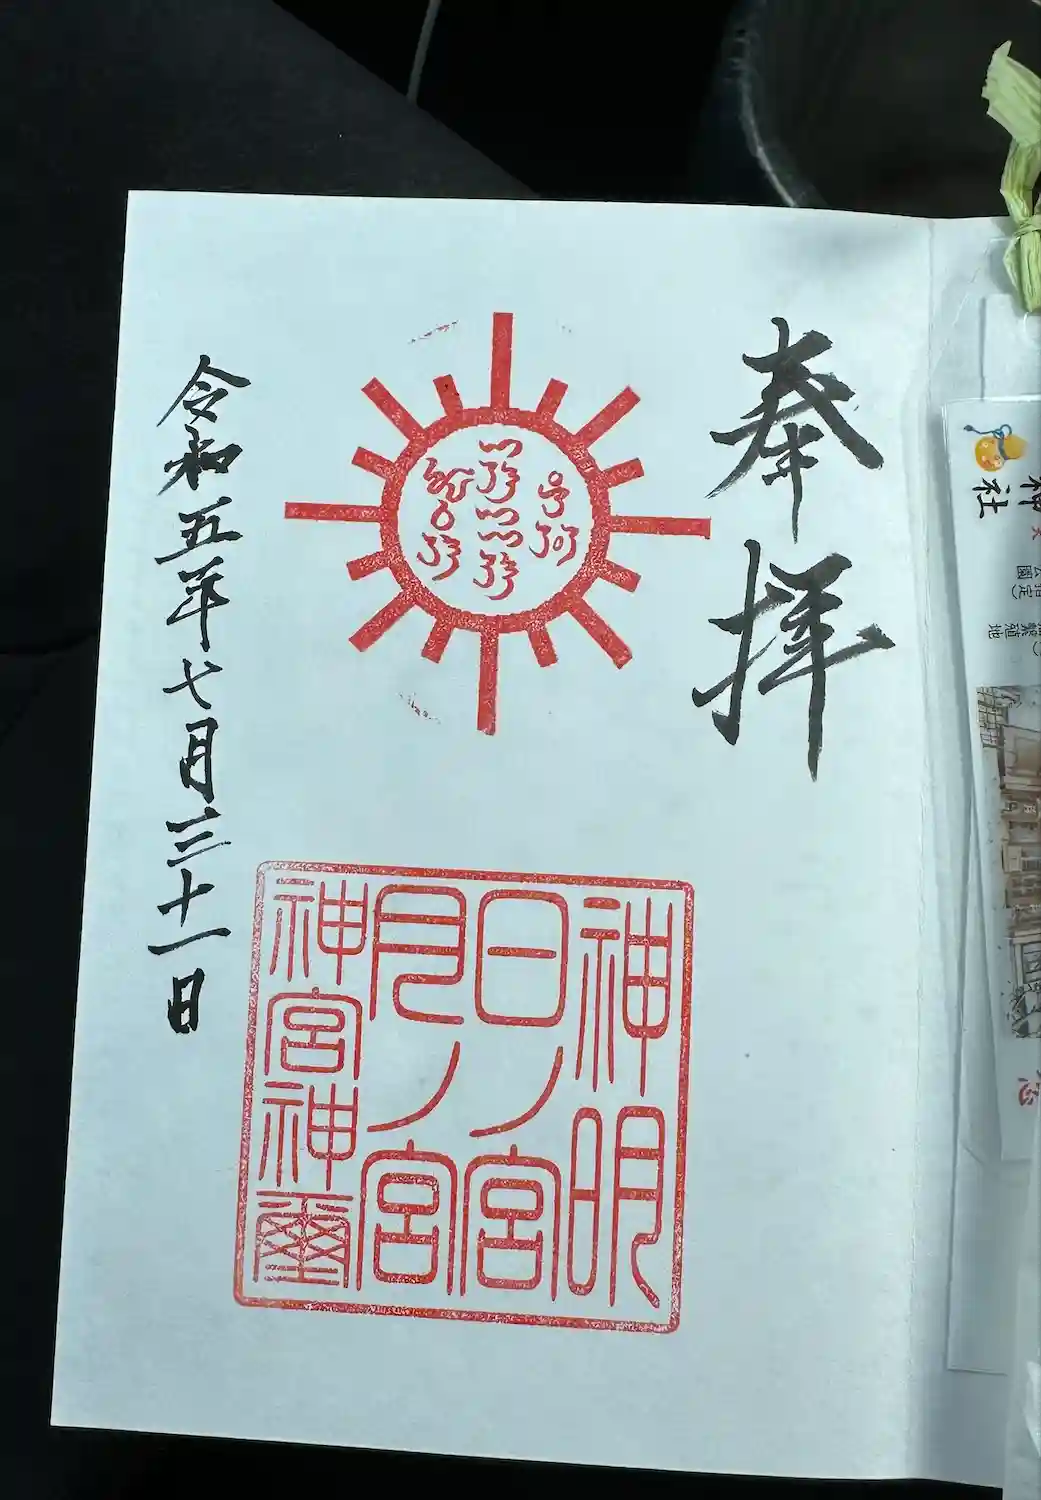 奉拝
神明
日ノ宮
月ノ宮
神宮神璽
令和五年七月三十一日
神社